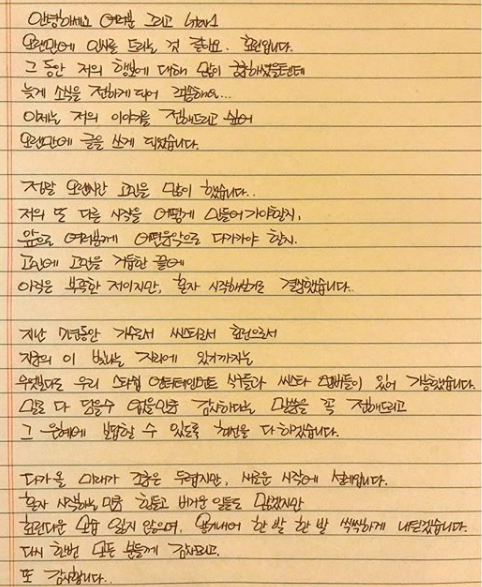 안녕하세요 여러분 그리고 star1
오랜만에 인사를 드리는 것 같아요. 효린입니다.
그 동안 저의 행보에 대해 많이 궁금하셨을텐데
늦게 소식을 전하게 되어 죄송해요...
이제는 저의 이야기를 전해드리고 싶어
오랜만에 글을 쓰게 되었습니다.
정말 오랜시간 고민을 많이 했습니다..
저의 또 다른 시작을 어떻게 만들어 가야할지,
앞으로 여러분께 어떤음악으로 다가가야 할지.
고민에 고민을 거듭한 끝에
아직은 부족한 저이지만, 혼자 시작해보기로 결정했습니다..
지난 7년동안 가수로서 씨스타로서 효린으로서
지금의 이 빛나는 자리에 있기까지는
무엇보다도 우리 스타쉽 엔터테인먼트 식구들과 씨스타 멤버들이 있어 가능했습니다.
말로 다 담을수 없을만큼 감사하다는 말씀을 꼭 전해드리고
그 은혜에 보답할 수 있도록 최선을 다 하겠습니다.
다가올 미래가 조금은 두렵지만, 새로운 시작에 설레입니다.
혼자 시작하는 만큼 힘들고 버거운 일들도 많겠지만
효린다운 모습 잃지 않으며, 용기내어 한 발 한 발 씩씩하게 내딛겠습니다.
다시 한번 모든 분들께 감사드리고.
또 감사합니다..